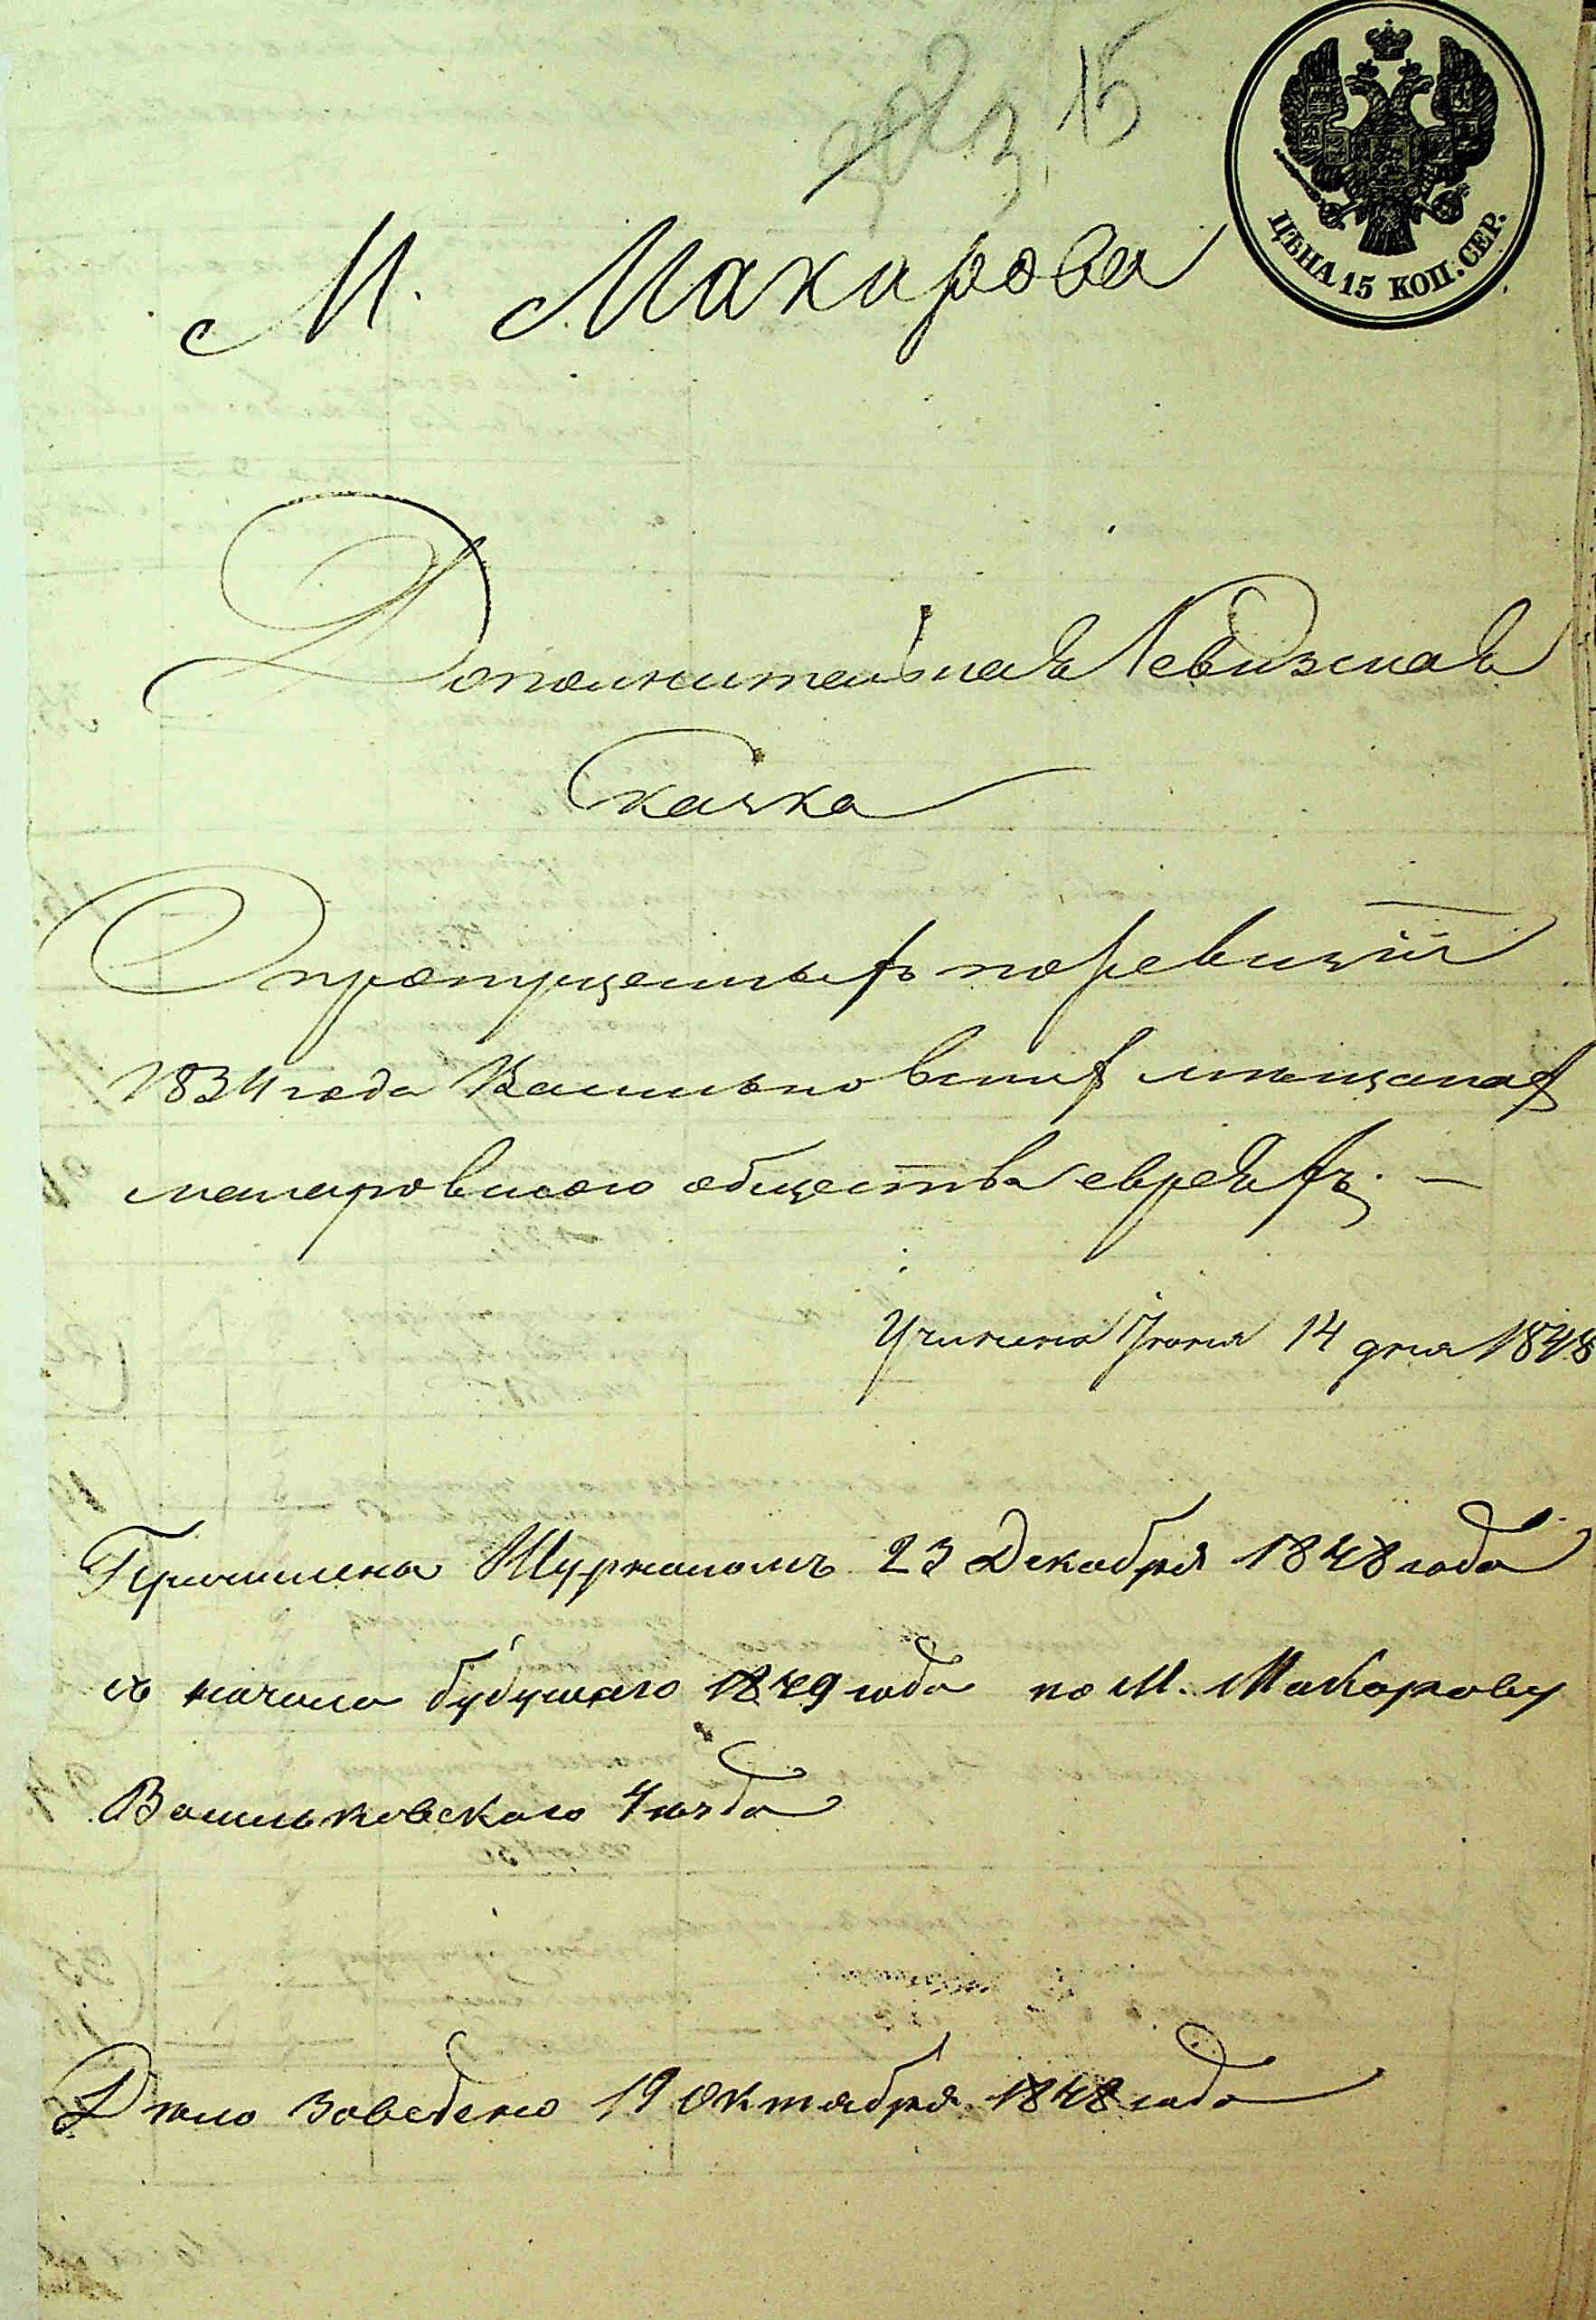 15
ЦѢНА 15 КОП. СЕР.
М. Махарова
Дополнительная Ревизская
Скаска
О пропущенныхъ по ревизіи
1834 года Васильковскихъ мещанах
макаровского общества евреяхъ. —
Учинена Іюня 14 дня 1848
Журналомъ 23 Декабря 1848 года
съ начала будущаго 1849 года по М. Макарову
Васильковского Уѣзда
Дѣло заведено 19 Октября 1848 года